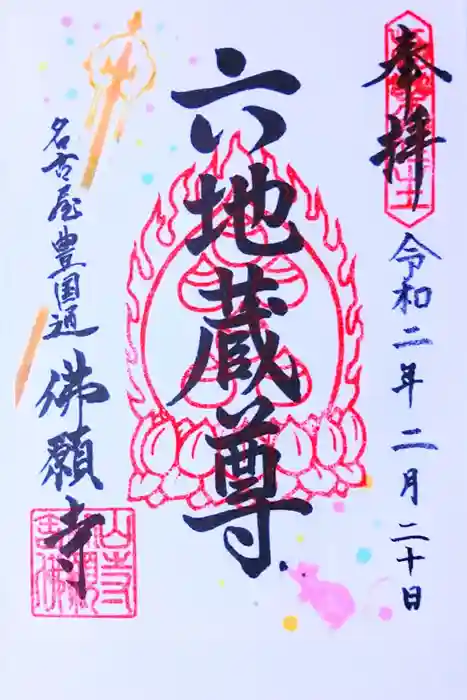 奉拝
令和二年二月二十日
六地蔵尊
名古屋豊国通
佛願寺